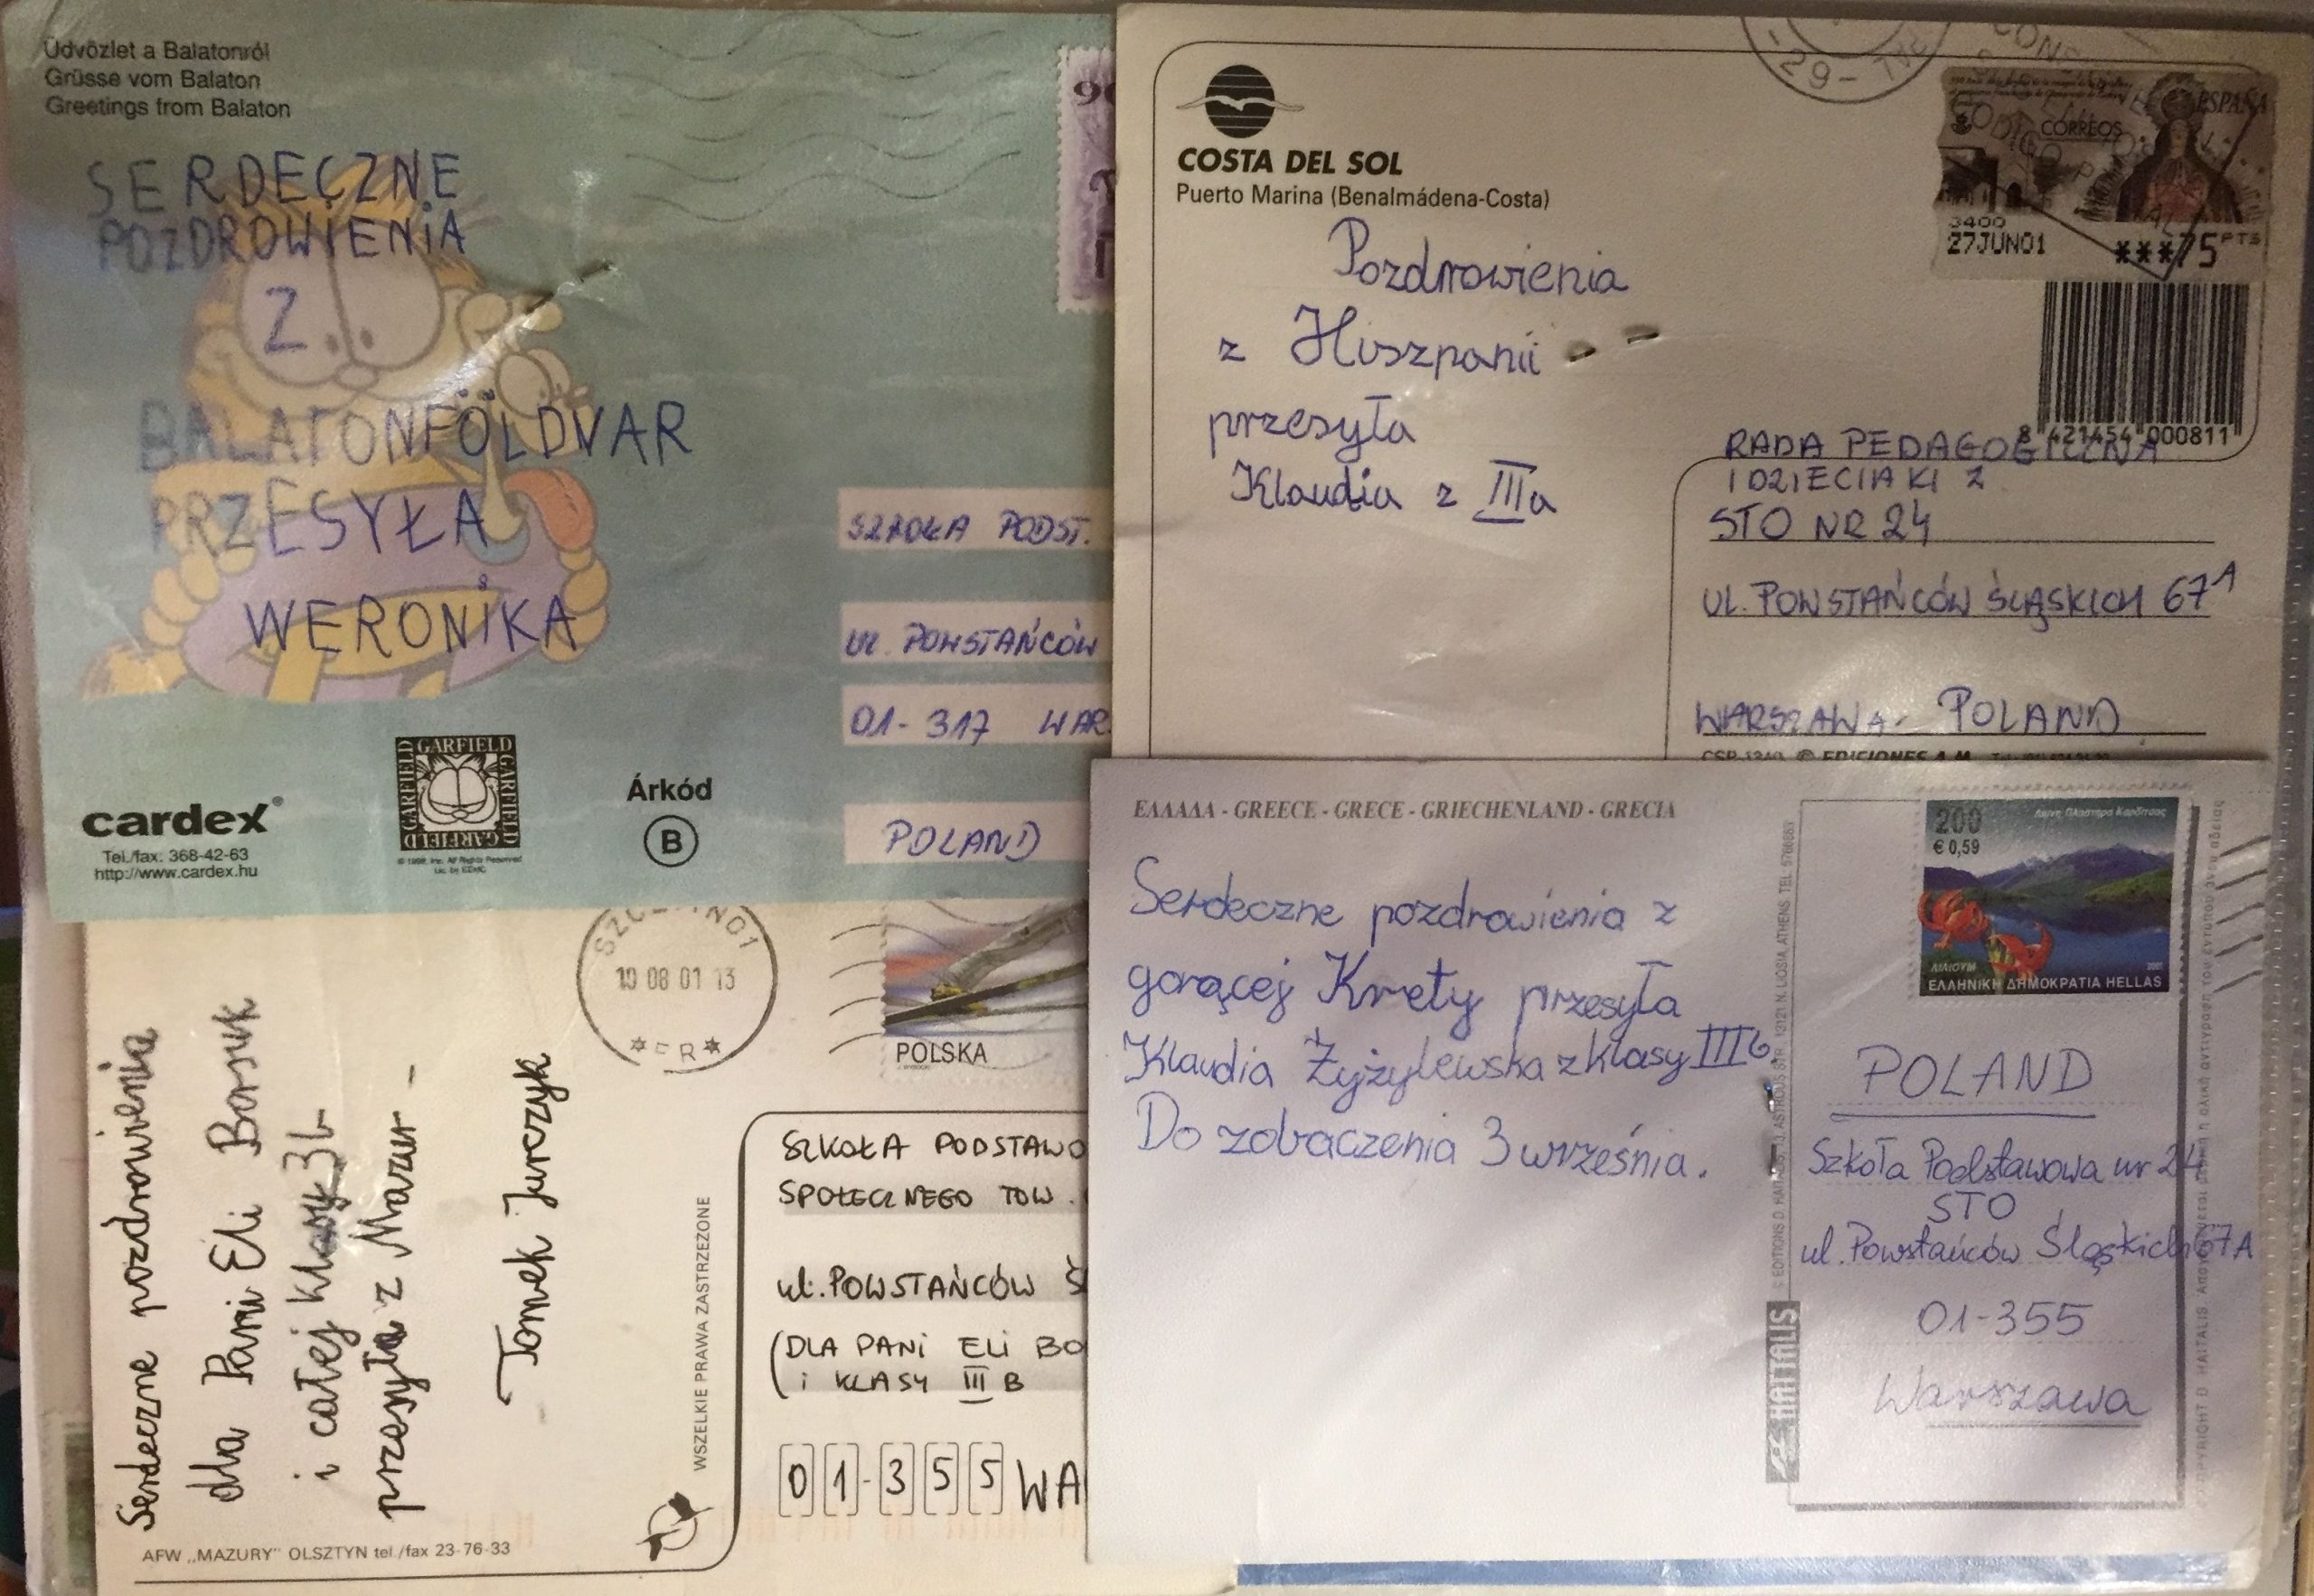 Üdvözlet a Balatonról
Grüsse vom Balaton
Greetings from Balaton
SERDECZNE
POZDROWIENIA
Z
BALATONFÖLDVAR
PRZESYŁA
WERONIKA
SZKOŁA PODST.
UL. POWSTAŃCÓW
01-317 WAR
POLAND
cardex®
Tel./fax: 368-42-63
http://www.cardex.hu
GARFIELD
GARFIELD
GARFIELD
GARFIELD
Árkód
B
COSTA DEL SOL
Puerto Marina (Benalmádena-Costa)
Pozdrowienia
z Hiszpanii
przesyła
Klaudia z IIIa
-29-
ESPAÑA
CORREOS
3400
27JUN01
***75 PTS
8 421454 000811
RADA PEDAGOGICZNA
I DZIECIAKI Z
STO NR 24
UL. POWSTAŃCÓW ŚLĄSKICH 67A
WARSZAWA - POLAND
Serdeczne pozdrowienia
dla Pani Eli Borsuk
i całej klasy 3b
przesyła z Mazur -
- Tomek Jurczyk
10 08 01 13
POLSKA
WSZELKIE PRAWA ZASTRZEŻONE
SZKOŁA PODSTAWO
SPOŁECZNEGO TOW.
ul. POWSTAŃCÓW Ś
(DLA PANI ELI BO
i KLASY III B
01-355 WA
AFW „MAZURY" OLSZTYN tel./fax 23-76-33
ΕΛΛΑΔΑ - GREECE - GRECE - GRIECHENLAND - GRECIA
Serdeczne pozdrowienia z
gorącej Krety przesyła
Klaudia Żyżylewska z klasy IIIb
Do zobaczenia 3 września.
200
€ 0,59
Λίμνη Πλαστήρα Καρδίτσας
ΛΙΛΙΟΥΜ
ΕΛΛΗΝΙΚΗ ΔΗΜΟΚΡΑΤΙΑ HELLAS
POLAND
Szkoła Podstawowa nr 24
STO
ul. Powstańców Śląskich 67A
01-355
Warszawa
HAITALIS